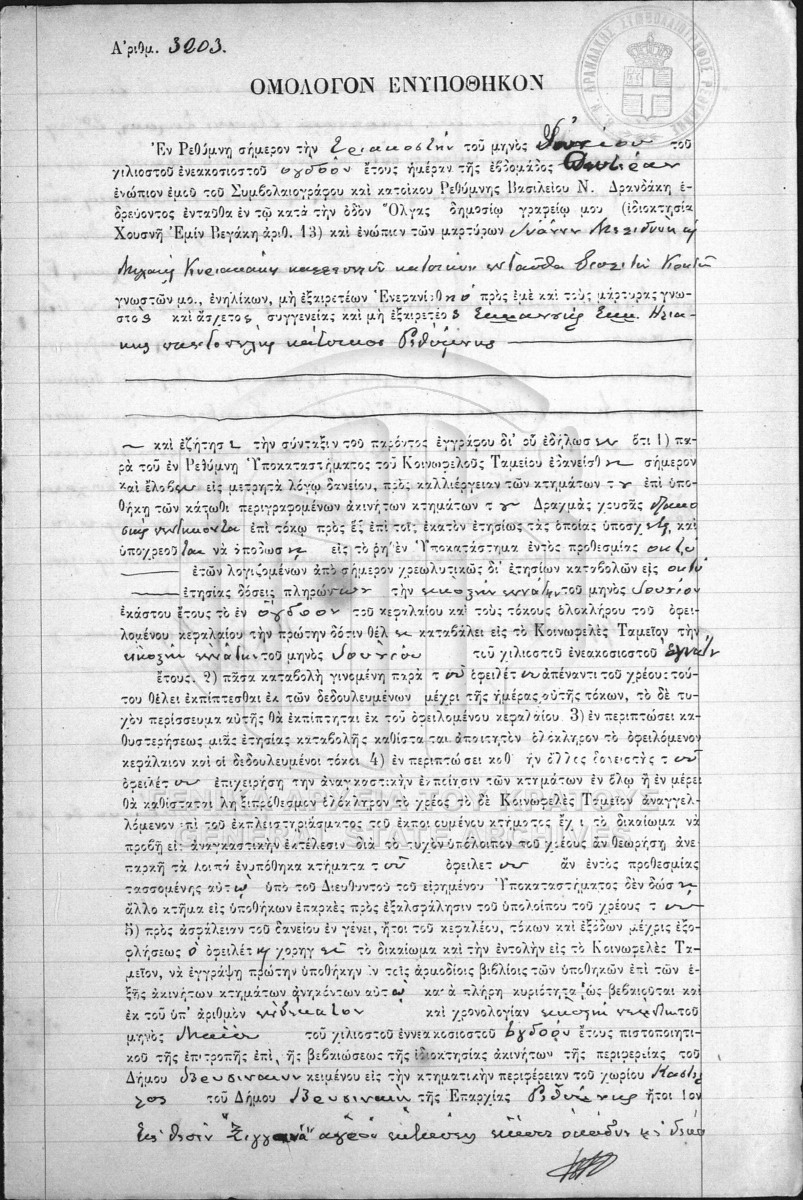 Ἀριθμ. 3203.
ΟΜΟΛΟΓΟΝ ΕΝΥΠΟΘΗΚΟΝ
Ἐν Ρεθύμνῃ σήμερον τὴν τριακοστὴν τοῦ μηνὸς Ἰουνίου τοῦ
χιλιοστοῦ ἐνεακοσιοστοῦ ὀγδόου ἔτους ἡμέραν τῆς ἑβδομάδος Δευτέραν
ἐνώπιον ἐμοῦ τοῦ Συμβολαιογράφου καὶ κατοίκου Ρεθύμνης Βασιλείου Ν. Δρανδάκη ἑ-
δρεύοντος ἐνταῦθα ἐν τῷ κατὰ τὴν ὁδὸν Ὄλγας δημοσίῳ γραφείῳ μου (ἰδιοκτησία
Χουσνῆ Ἐμὶν Βεγάκη ἀριθ. 13) καὶ ἐνώπιον τῶν μαρτύρων Ἰωάννη
Κυριακάκη κατοίκων ἐνταῦθα
γνωστῶν μο., ἐνηλίκων, μὴ ἐξαιρετέων Ἐνεφανίσθη ὁ πρὸς ἐμὲ καὶ τοὺς μάρτυρας γνω-
στὸς καὶ ἄσχετος συγγενείας καὶ μὴ ἐξαιρετέος Ἐμμανουὴλ Ἐμμ. Ηλια-
κης παντοπώλης κάτοικος Ρεθύμνης
καὶ ἐζήτησε τὴν σύνταξιν τοῦ παρόντος ἐγγράφου δι' οὗ ἐδήλωσεν ὅτι 1) πα-
ρὰ τοῦ ἐν Ρεθύμνῃ Ὑποκαταστήματος τοῦ Κοινωφελοῦς Ταμείου ἐδανείσθη σήμερον
καὶ ἔλαβεν εἰς μετρητὰ λόγῳ δανείου, πρὸς καλλιέργειαν τῶν κτημάτων του ἐπὶ ὑπο-
θήκῃ τῶν κάτωθι περιγραφομένων ἀκινήτων κτημάτων του Δραχμὰς χρυσᾶς
ἐπὶ τόκῳ πρὸς ἓξ ἐπὶ τοῖς ἑκατὸν ἐτησίως τὰς ὁποίας ὑποσχεται καὶ
ὑποχρεοῦται νὰ ἀποδώσῃ εἰς τὸ ρηθὲν Ὑποκατάστημα ἐντὸς προθεσμίας ὀκτὼ
ἐτῶν λογιζομένων ἀπὸ σήμερον χρεωλυτικῶς δι' ἐτησίων καταβολῶν εἰς ὀκτὼ
ἐτησίας δόσεις πληρώνων τὴν εἰκοστὴν ἐννάτην τοῦ μηνὸς Ἰουνίου
ἑκάστου ἔτους τὸ ἓν ὄγδοον τοῦ κεφαλαίου καὶ τοὺς τόκους ὁλοκλήρου τοῦ ὀφει-
λομένου κεφαλαίου τὴν πρώτην δόσιν θέλει καταβάλει εἰς τὸ Κοινωφελὲς Ταμεῖον τὴν
εἰκοστὴν ἐννάτην τοῦ μηνὸς Ἰουνίου τοῦ χιλιοστοῦ ἐνεακοσιοστοῦ ἐννάτου
ἔτους. 2) πᾶσα καταβολὴ γινομένη παρὰ τοῦ ὀφειλέτου ἀπέναντι τοῦ χρέους τού-
του θέλει ἐκπίπτεσθαι ἐκ τῶν δεδουλευμένων μέχρι τῆς ἡμέρας αὐτῆς τόκων, τὸ δὲ τυ-
χὸν περίσσευμα αὐτῆς θὰ ἐκπίπτηται ἐκ τοῦ ὀφειλομένου κεφαλαίου. 3) ἐν περιπτώσει κα-
θυστερήσεως μιᾶς ἐτησίας καταβολῆς καθίσταται ἀπαιτητὸν ὁλόκληρον τὸ ὀφειλόμενον
κεφάλαιον καὶ οἱ δεδουλευμένοι τόκοι 4) ἐν περιπτώσει καθ' ἣν ἄλλος δανειστὴς τοῦ
ὀφειλέτου ἐπιχειρήσῃ τὴν ἀναγκαστικὴν ἐκποίησιν τῶν κτημάτων ἐν ὅλῳ ἢ ἐν μέρει
θὰ καθίσταται ληξιπρόθεσμον ὁλόκληρον τὸ χρέος τὸ δὲ Κοινωφελὲς Ταμεῖον ἀναγγελ-
λόμενον ἐπὶ τοῦ ἐκπλειστηριάσματος τοῦ ἐκποιουμένου κτήματος ἔχει τὸ δικαίωμα νὰ
προβῇ εἰς ἀναγκαστικὴν ἐκτέλεσιν διὰ τὸ τυχὸν ὑπόλοιπον τοῦ χρέους ἂν θεωρήσῃ ἀνε-
παρκῆ τὰ λοιπὰ ἐνυπόθηκα κτήματα τοῦ ὀφειλέτου ἂν ἐντὸς προθεσμίας
τασσομένης αὐτῷ ὑπὸ τοῦ Διευθυντοῦ τοῦ εἰρημένου Ὑποκαταστήματος δὲν δώσῃ
ἄλλο κτῆμα εἰς ὑποθήκην ἐπαρκὲς πρὸς ἐξασφάλησιν τοῦ ὑπολοίπου τοῦ χρέους του
5) πρὸς ἀσφάλειαν τοῦ δανείου ἐν γένει, ἤτοι τοῦ κεφαλέου, τόκων καὶ ἐξόδων μέχρις ἐξο-
φλήσεως ὁ ὀφειλέτης χορηγεῖ τὸ δικαίωμα καὶ τὴν ἐντολὴν εἰς τὸ Κοινωφελὲς Τα-
μεῖον, νὰ ἐγγράψῃ πρώτην ὑποθήκην ἐν τοῖς ἁρμοδίοις βιβλίοις τῶν ὑποθηκῶν ἐπὶ τῶν ἑ-
ξῆς ἀκινήτων κτημάτων ἀνηκόντων αὐτῷ κατὰ πλήρη κυριότητα ὡς βεβαιοῦται καὶ
ἐκ τοῦ ὑπ' ἀριθμὸν ἑνδέκατον καὶ χρονολογίαν εἰκοστὴν τοῦ
μηνὸς Μαΐου τοῦ χιλιοστοῦ ἐννεακοσιοστοῦ ὀγδόου ἔτους πιστοποιητι-
κοῦ τῆς ἐπιτροπῆς ἐπὶ τῆς βεβαιώσεως τῆς ἰδιοκτησίας ἀκινήτων τῆς περιφερείας τοῦ
Δήμου Βρυσιναίων κειμένου εἰς τὴν κτηματικὴν περιφέρειαν τοῦ χωρίου Καστέλ-
λος τοῦ Δήμου Βρυσιναίων τῆς Ἐπαρχίας Ρεθύμνης ἤτοι 1ον
Εἰς θέσιν ἀγρὸν ἐκτάσεως
ΓΕΝΙΚΑ ΑΡΧΕΙΑ ΤΟΥ ΚΡΑΤΟΥΣ
GENERAL STATE ARCHIVES